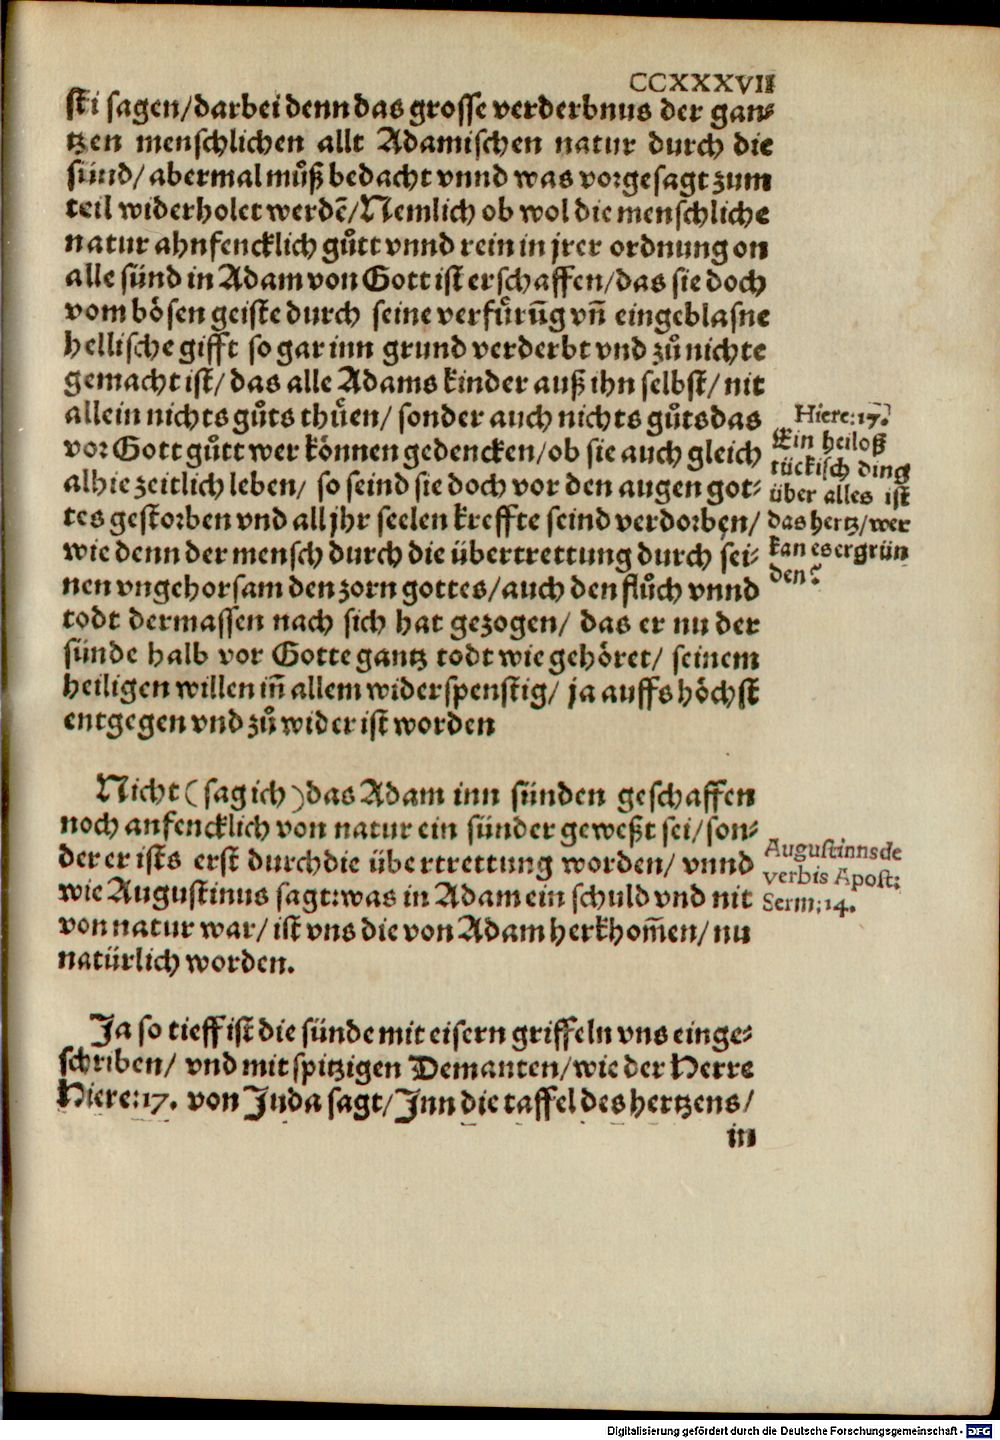 CCXXXVII
sti sagen/darbei denn das grosse verderbnus der gan-
tzen menschlichen allt Adamischen natur durch die
sünd/ abermal mů̊ß bedacht vnnd was vorgesagt zum
teil widerholet werdē/Nemlich ob wol die menschliche
natur ahnfencklich gůtt vnnd rein in jrer ordnung on
alle sünd in Adam von Gott ist erschaffen/das sie doch
vom bösen geiste durch seine verfürūg vñ eingeblasne
hellische gifft so gar inn grund verderbt vnd zů nichte
gemacht ist/ das alle Adams kinder auß ihn selbst/ nit
allein nichts gůts thůen/ sonder auch nichts gůts das
vor Gott gůtt wer können gedencken/ob sie auch gleich
alhie zeitlich leben/ so seind sie doch vor den augen got-
tes gestorben vnd all jhr seelen kreffte seind verdorben/
wie denn der mensch durch die übertrettung durch sei-
nen vngehorsam den zorn gottes/auch den flůch vnnd
todt dermassen nach sich hat gezogen/ das er nu der
sünde halb vor Gotte gantz todt wie gehöret/ seinem
heiligen willen iñ allem widerspenstig/ ja auffs höchst
entgegen vnd zů wider ist worden
Hiere:17.
Ein heiloß
tückisch ding
über alles ist
das hertz/wer
kan es ergrün
den?
Nicht (sag ich) das Adam inn sünden geschaffen
noch anfencklich von natur ein sünder geweßt sei/son-
der er ists erst durch die übertrettung worden/ vnnd
wie Augustinus sagt:was in Adam ein schuld vnd nit
von natur war/ ist vns die von Adam herkhom̄en/ nu
natürlich worden.
Augustinns de
verbis Apost:
Serm:14.
Ja so tieff ist die sünde mit eisern griffeln vns einge-
schriben/ vnd mit spitzigen Demanten/wie der Herre
Hiere:17. von Juda sagt/Jnn die taffel des hertzens/
in
Digitalisierung gefördert durch die Deutsche Forschungsgemeinschaft - DFG